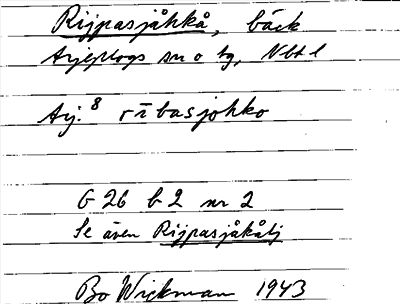 Rijpasjåhkå, bäck
Arjeplogs sn o tg, Nbt l
Arj.⁸ rībasjohko
G 26 b 2 nr 2
Se även Rijpasjåkålj
Bo Wickman 1943